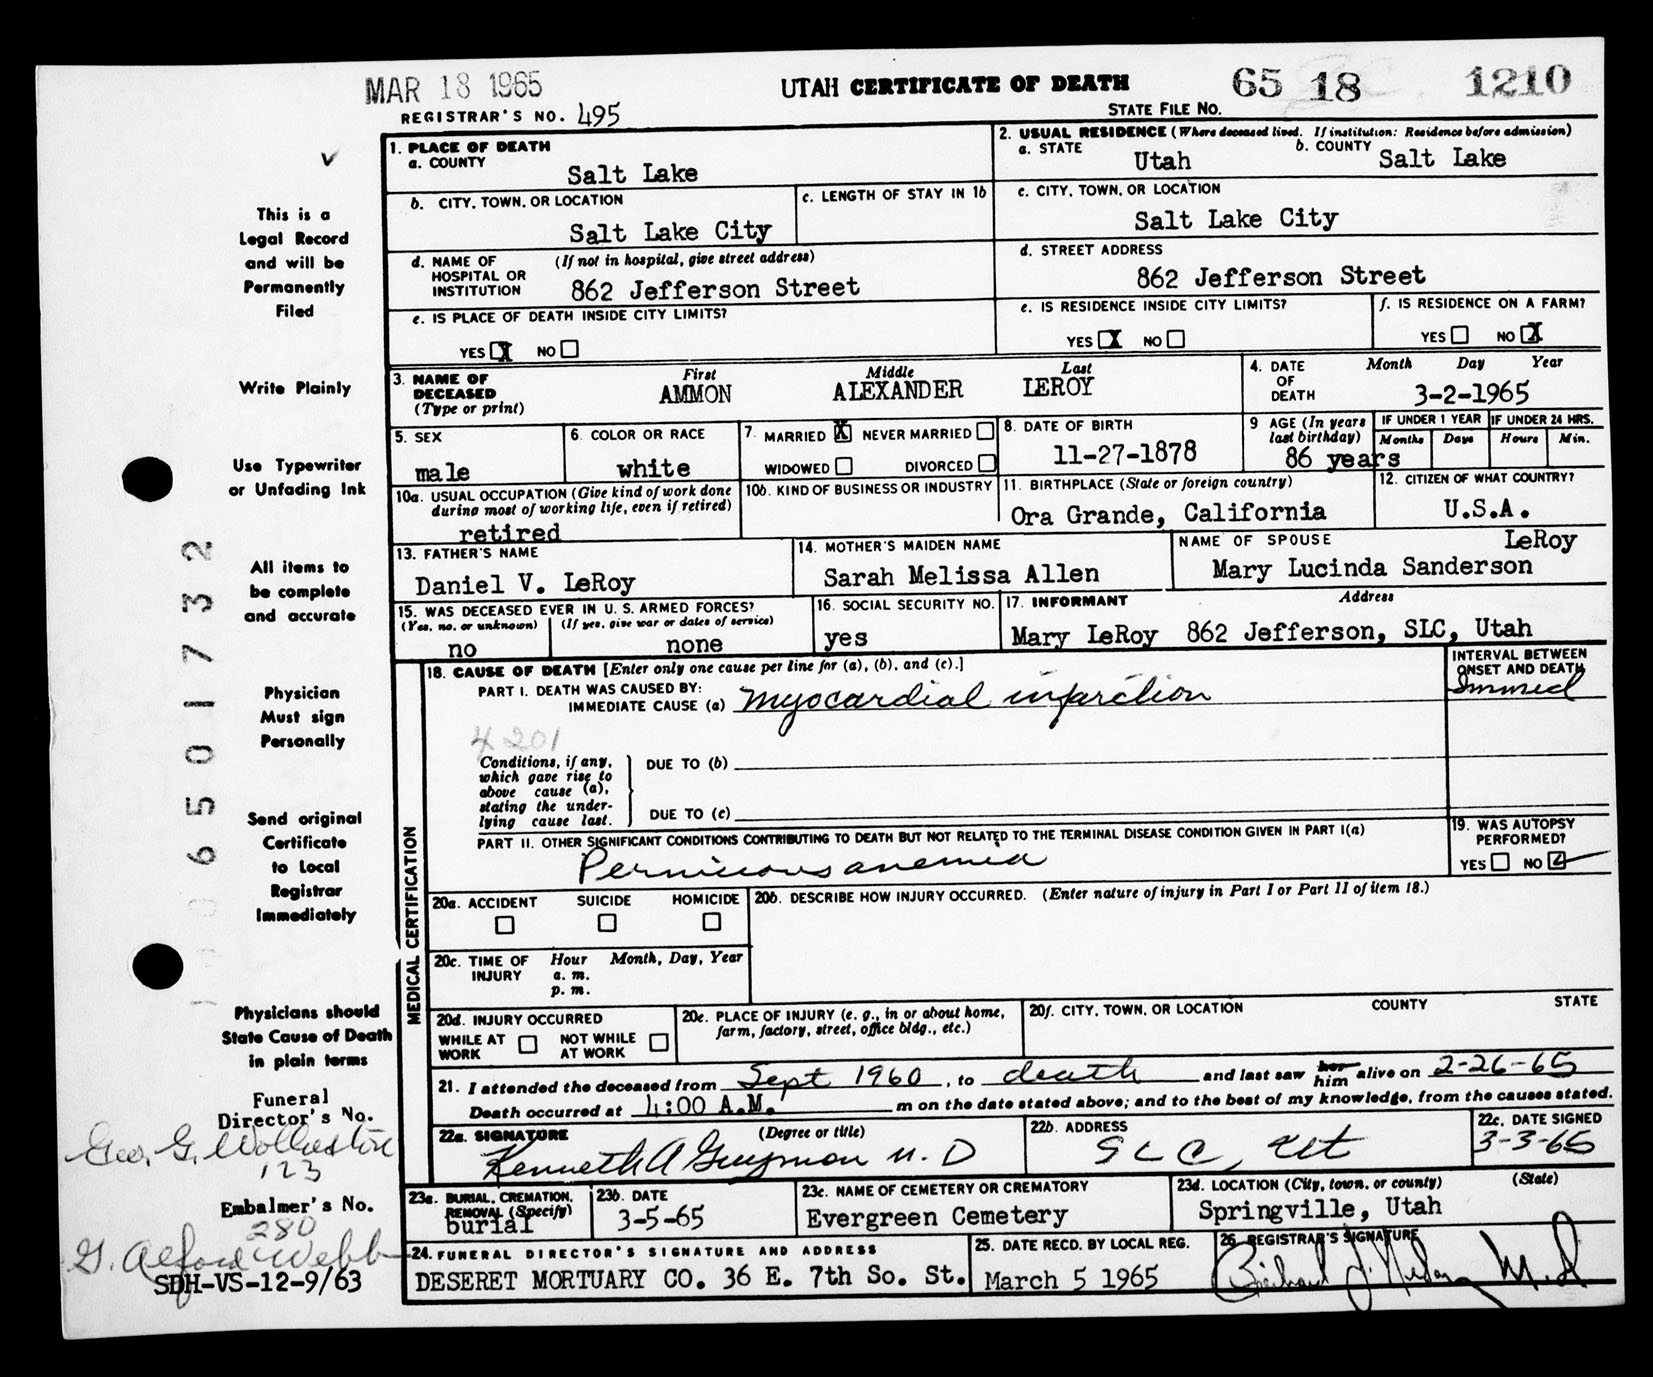 MAR 18 1965
UTAH CERTIFICATE OF DEATH 65 18 1210
REGISTRAR'S NO. 495
STATE FILE NO.
1. PLACE OF DEATH
a. COUNTY
Salt Lake
2. USUAL RESIDENCE (Where deceased lived. If institution: Residence before admission)
a. STATE Utah b. COUNTY Salt Lake
b. CITY, TOWN, OR LOCATION
Salt Lake City
c. LENGTH OF STAY IN 1b
c. CITY, TOWN, OR LOCATION
Salt Lake City
d. NAME OF HOSPITAL OR INSTITUTION (If not in hospital, give street address)
862 Jefferson Street
d. STREET ADDRESS
862 Jefferson Street
e. IS PLACE OF DEATH INSIDE CITY LIMITS?
YES X NO
e. IS RESIDENCE INSIDE CITY LIMITS?
YES X NO
f. IS RESIDENCE ON A FARM?
YES NO X
3. NAME OF DECEASED (Type or print)
First Middle Last
AMMON ALEXANDER LEROY
4. DATE OF DEATH Month Day Year
3-2-1965
5. SEX
male
6. COLOR OR RACE
white
7. MARRIED X NEVER MARRIED
WIDOWED DIVORCED
8. DATE OF BIRTH
11-27-1878
9 AGE (In years last birthday)
86 years
IF UNDER 1 YEAR IF UNDER 24 HRS.
Months Days Hours Min.
10a. USUAL OCCUPATION (Give kind of work done during most of working life, even if retired)
retired
10b. KIND OF BUSINESS OR INDUSTRY
11. BIRTHPLACE (State or foreign country)
Ora Grande, California
12. CITIZEN OF WHAT COUNTRY?
U.S.A.
13. FATHER'S NAME
Daniel V. LeRoy
14. MOTHER'S MAIDEN NAME
Sarah Melissa Allen
NAME OF SPOUSE LeRoy
Mary Lucinda Sanderson
15. WAS DECEASED EVER IN U. S. ARMED FORCES?
(Yes, no, or unknown) (If yes, give war or dates of service)
no none
16. SOCIAL SECURITY NO.
yes
17. INFORMANT Address
Mary LeRoy 862 Jefferson, SLC, Utah
18. CAUSE OF DEATH [Enter only one cause per line for (a), (b), and (c).]
INTERVAL BETWEEN ONSET AND DEATH
PART I. DEATH WAS CAUSED BY:
IMMEDIATE CAUSE (a) myocardial infarction Immed
4201
Conditions, if any, which gave rise to above cause (a), stating the underlying cause last.
DUE TO (b)
DUE TO (c)
PART II. OTHER SIGNIFICANT CONDITIONS CONTRIBUTING TO DEATH BUT NOT RELATED TO THE TERMINAL DISEASE CONDITION GIVEN IN PART I(a)
Pernicious anemia
19. WAS AUTOPSY PERFORMED?
YES NO
MEDICAL CERTIFICATION
20a. ACCIDENT SUICIDE HOMICIDE
20b. DESCRIBE HOW INJURY OCCURRED. (Enter nature of injury in Part I or Part II of item 18.)
20c. TIME OF INJURY Hour Month, Day, Year
a. m.
p. m.
20d. INJURY OCCURRED
WHILE AT WORK NOT WHILE AT WORK
20e. PLACE OF INJURY (e. g., in or about home, farm, factory, street, office bldg., etc.)
20f. CITY, TOWN, OR LOCATION COUNTY STATE
21. I attended the deceased from Sept 1960, to death and last saw her him alive on 2-26-65
Death occurred at 4:00 A.M. m on the date stated above; and to the best of my knowledge, from the causes stated.
22a. SIGNATURE (Degree or title)
Kenneth A Guymon M.D
22b. ADDRESS
SLC, Ut
22c. DATE SIGNED
3-3-65
23a. BURIAL, CREMATION, REMOVAL (Specify)
burial
23b. DATE
3-5-65
23c. NAME OF CEMETERY OR CREMATORY
Evergreen Cemetery
23d. LOCATION (City, town, or county) (State)
Springville, Utah
24. FUNERAL DIRECTOR'S SIGNATURE AND ADDRESS
DESERET MORTUARY CO. 36 E. 7th So. St.
25. DATE RECD. BY LOCAL REG.
March 5 1965
26 REGISTRAR'S SIGNATURE
M.D
This is a
Legal Record
and will be
Permanently
Filed
Write Plainly
Use Typewriter
or Unfading Ink
All items to
be complete
and accurate
Physician
Must sign
Personally
Send original
Certificate
to Local
Registrar
Immediately
Physicians should
State Cause of Death
in plain terms
Funeral
Director's No.
Geo. G.
123
Embalmer's No.
280
G. Alford Webb
SDH-VS-12-9/63
06501732